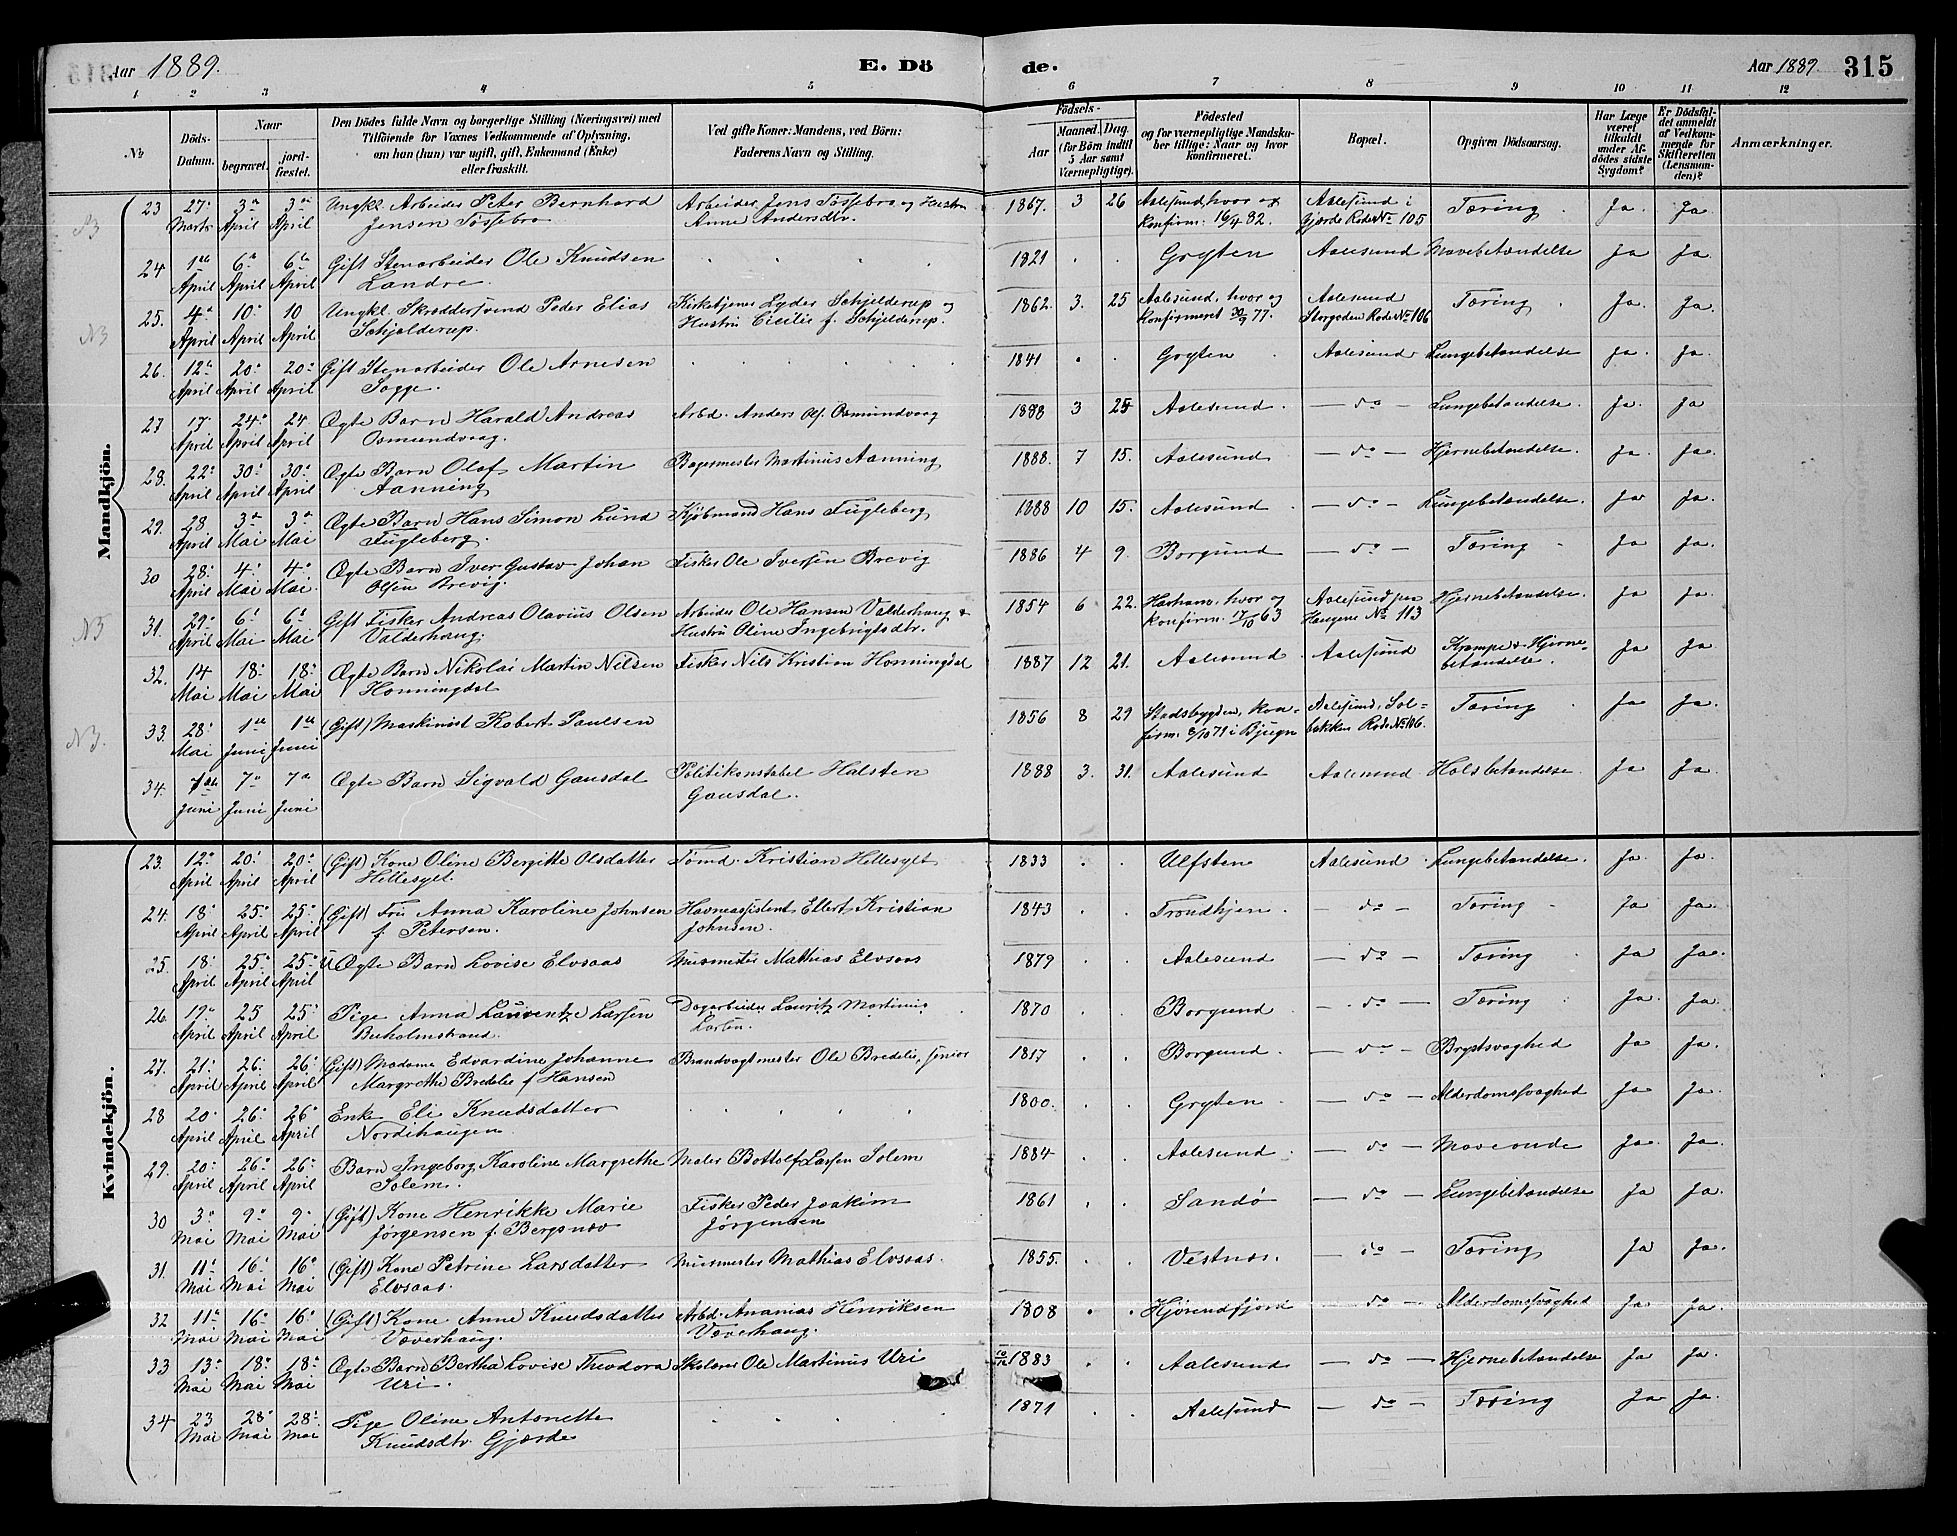 Aar 1889. E. Dö
de. Aar 1889. 315
1 2 3 4 5 6 7 8 9 10 11 12
No
Döds-Datum.
Naar
begravet.
jord-fæstet.
Den Dödes fulde Navn og borgerlige Stilling (Næringsvei) med
Tilföiende for Voxnes Vedkommende af Oplysning,
om han (hun) var ugift, gift, Enkemand (Enke)
eller fraskilt.
Ved gifte Koner: Mandens, ved Börn:
Faderens Navn og Stilling.
Födsels-
Aar
Maaned. Dag.
(for Börn indtil
5 Aar samt
Værnepligtige).
Födested
og for værnepligtige Mandska-
ber tillige: Naar og hvor
konfirmeret.
Bopæl.
Opgiven Dödsaarsag.
Har Læge
været
tilkaldt
under Af-
dödes sidste
Sygdom?
Er Dödsfal-
det anmeldt
af Vedkom-
mende for
Skifteretten
(Lensman-
den)?
Anmærkninger.
Mandkjön.
23 27. 3die 3die Ungkl. Arbeider Peter Bernhard Arbeider Jens Tøssebro og Hustru 1867. 3 26 Aalesund, hvor og Aalesund i Tæring Ja. Ja.
Marts April April Jensen Tøssebro Anne Andersdtr. konfirm. 16/4 82. Gjørde Rode No 105
24 1ste 6te 6te Gift Stenarbeider Ole Knudsen 1821 Grytten Aalesund Mavebetændelse Ja Ja
April April April Landre.
25. 4de 10. 10 Ungkl. Skræddersvend Peder Elias Kirketjener Lyder Schjelderup og 1862. 3. 25 Aalesund, hvor og Aalesund Tæring Ja. Ja.
April April April Schjelderup. Hustru Cicilie f. Schjelderup. konfirmeret 30/9 77. Storgaden Rode No 106
26. 12te 20. 20. Gift Stenarbeider Ole Arnesen 1841 Grytten Aalesund Lungebetændelse Ja. Ja.
April April April Sogge.
27 17. 24. 24 Ægte Barn Harald Andreas Arbd. Anders Ols. Osmundvaag 1888 3 25 Aalesund. do Lungebetændelse. Ja. Ja
April April April Osmundvaag.
28. 22. 30. 30. Ægte Barn Olaf Martin Bagermester Martinus Aanning 1888. 7 15. Aalesund do Hjernebetændelse. Ja. Ja.
April April April Aanning
29. 28 3die 3die Ægte Barn Hans Simon Lund Kjøbmand Hans Fugleberg 1888 10 15. Aalesund do Lungebetændelse. Ja Ja.
April Mai Mai Fugleberg.
30 28. 4. 4. Ægte Barn Iver Gustav Johan Fisker Ole Iversen Brevig 1886 4 9. Borgund do Tæring Ja Ja.
April Mai Mai Olsen Brevig.
31. 29. 6. 6. Gift Fisker Andreas Olavius Olsen Arbeider Ole Hansen Valderhaug & 1854 6 22. Harham, hvor og Aalesund paa Hjernebetændelse. Ja Ja
April Mai Mai Valderhaug. Hustru Oline Ingebrigtsdtr. konfirm. 17/10 63 Haugene No 113
32. 14 18. 18. Ægte Barn Nikolai Martin Nilsen Fisker Nils Kristian Honningdal 1887 12 21. Aalesund Aalesund Krampe & Hjerne- Ja Ja
Mai Mai Mai Honningdal betændelse.
33. 28. 1ste 1ste (Gift) Maskinist Robert Paulsen 1856 8 29 Stadsbygden, kon- Aalesund, Sol- Tæring Ja Ja.
Mai Juni Juni firm. 8/10 71 i Bjugn bakken Rode No 106.
34. 1ste 7de 7de Ægte Barn Sigvald Gausdal Politikonstabel Halsten 1888 3. 31. Aalesund Aalesund Halsbetændelse. Ja Ja.
Juni Juni Juni Gausdal.
Kvindekjön.
23. 12. 20. 20. (Gift) Kone Oline Bergitte Olsdatter Tømd. Kristian Hellesylt 1833 Ulfsten Aalesund Lungebetændelse. Ja. Ja.
April April April Hellesylt.
24. 18. 25. 25. (Gift) Fru Anna Karoline Johnsen Havneassistent Ellert Kristian 1843 Trondhjem do Tæring Ja Ja.
April April April f. Petersen. Johnsen.
25. 18. 25. 25. U Ægte Barn Lovise Elvsaas Murmester Mathias Elvsaas 1879 Aalesund do Tæring Ja Ja.
April April April
26. 19. 25 25. Pige Anna Lauventze Larsen Dagarbeider Lauritz Martinius 1870 Borgund do Tæring Ja. Ja.
April April April Buholmstrand. Larsen.
27. 21. 26. 26. (Gift) Madame Edvardine Johanne Brandvagtmester Ole Bredeli, senior 1817 Borgund do Brystsvaghed Ja Ja.
April April April Margrethe Bredeli f Hansen
28 20. 26. 26. Enke Eli Knudsdatter 1800. Grytten do Alderdomssvaghed Ja Ja.
April April April Nordihaugen.
29. 20. 26. 26. Barn Ingeborg Karoline Margrethe Maler Bottolf Larsen Solem 1884 Aalesund do Maveonde Ja. Ja.
April April April Solem.
30 3. 9. 9. (Gift) Kone Henrikke Marie Fisker Peder Joakim 1861 Sandø do Lungebetændelse Ja Ja.
Mai Mai Mai Jørgensen f. Bergsnæv Jørgensen
31. 11. 16. 16. (Gift) Kone Petrine Larsdatter Murmester Mathias Elvsaas. 1855. Vestnæs. do Tæring Ja Ja.
Mai Mai Mai Elvsaas.
32 11. 16. 16. (Gift) Kone Anne Knudsdatter Arbd. Ananias Henriksen 1808 Hjørundfjord do Alderdomssvaghed Ja Ja.
Mai Mai Mai Væverhaug. Væverhaug.
33 13. 18. 18. Ægte Barn Bertha Lovise Theodora Skolærer Ole Martinus Uri 1883 Aalesund do Hjernebetændelse Ja Ja
Mai Mai Mai Uri.
34 23 28. 28. Pige Oline Antonette 1871 Aalesund do Tæring Ja Ja.
Mai Mai Mai Knudsdtr. Gjærde